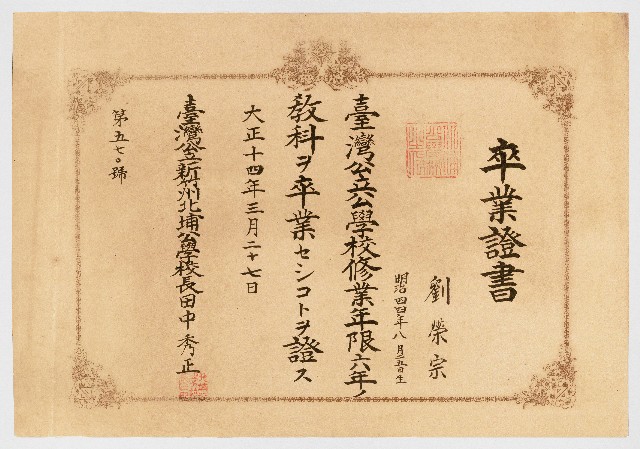 卒業證書
劉榮宗
明治四四年八月日生
臺灣公立公學校修業年限六年ノ
教科ヲ卒業セシコトヲ證ス
大正十四年三月二十七日
臺灣公立新竹州北埔公學校長田中秀正
第五七〇號